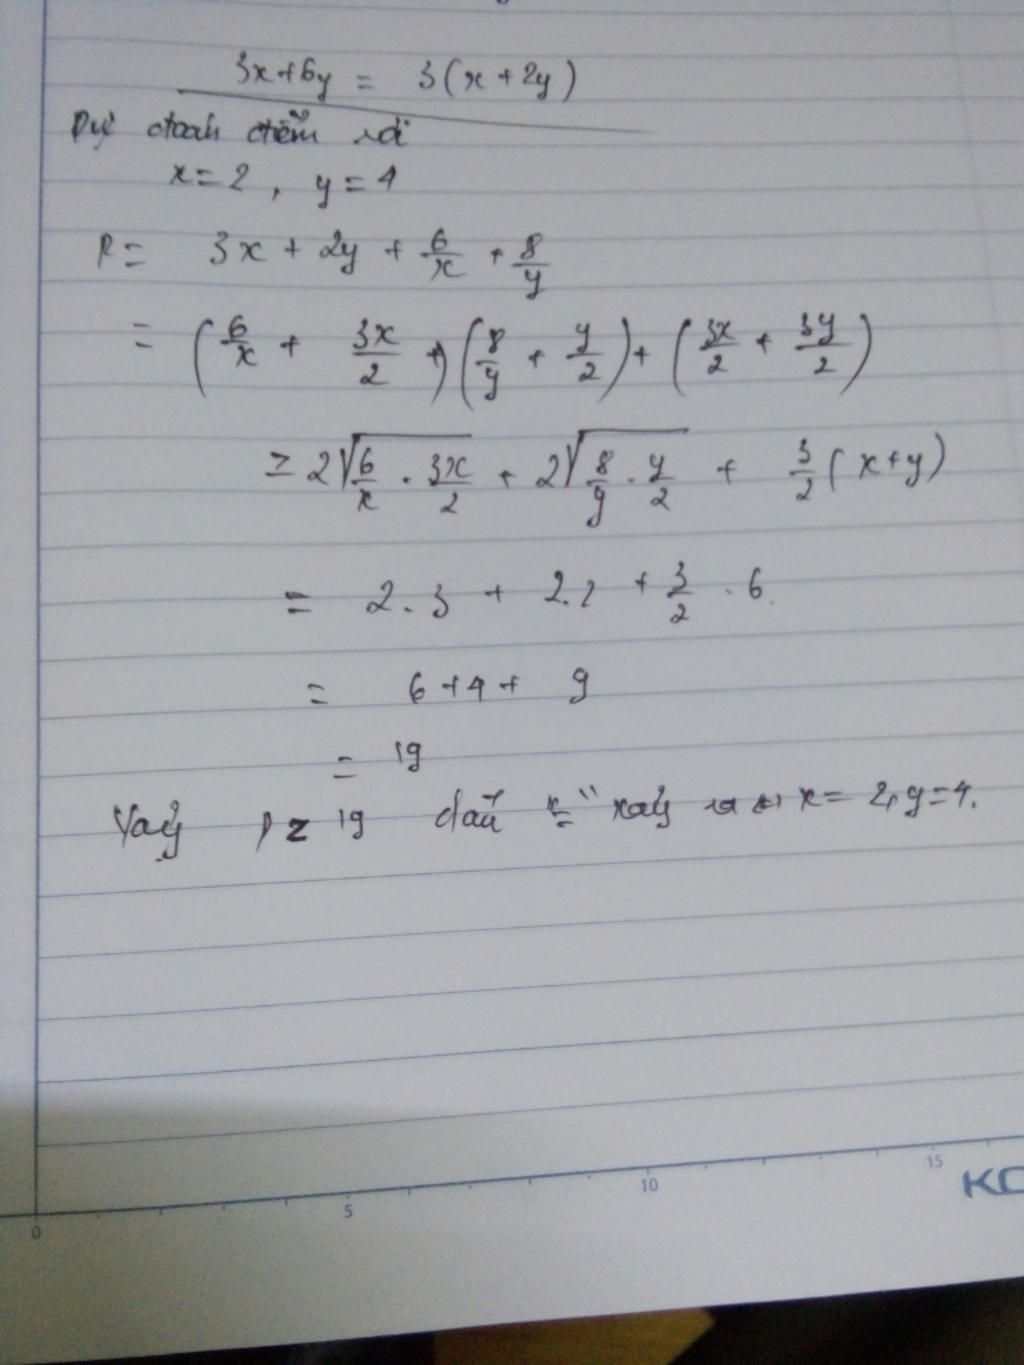 3x+6y = 3(x+2y)
Dự đoán điểm rơi
x=2, y=4
P= 3x + 2y + 6/x + 8/y
= (6/x + 3x/2 +) (8/y + y/2) + (3x/2 + 3y/2)
≥ 2√(6/x . 3x/2) + 2√(8/y . y/2) + 3/2 (x+y)
= 2.3 + 2.2 + 3/2 . 6
= 6+4+ 9
= 19
Vậy P ≥ 19 dấu "=" xảy ra ⇔ x= 2, y=4.
0 5 10 15